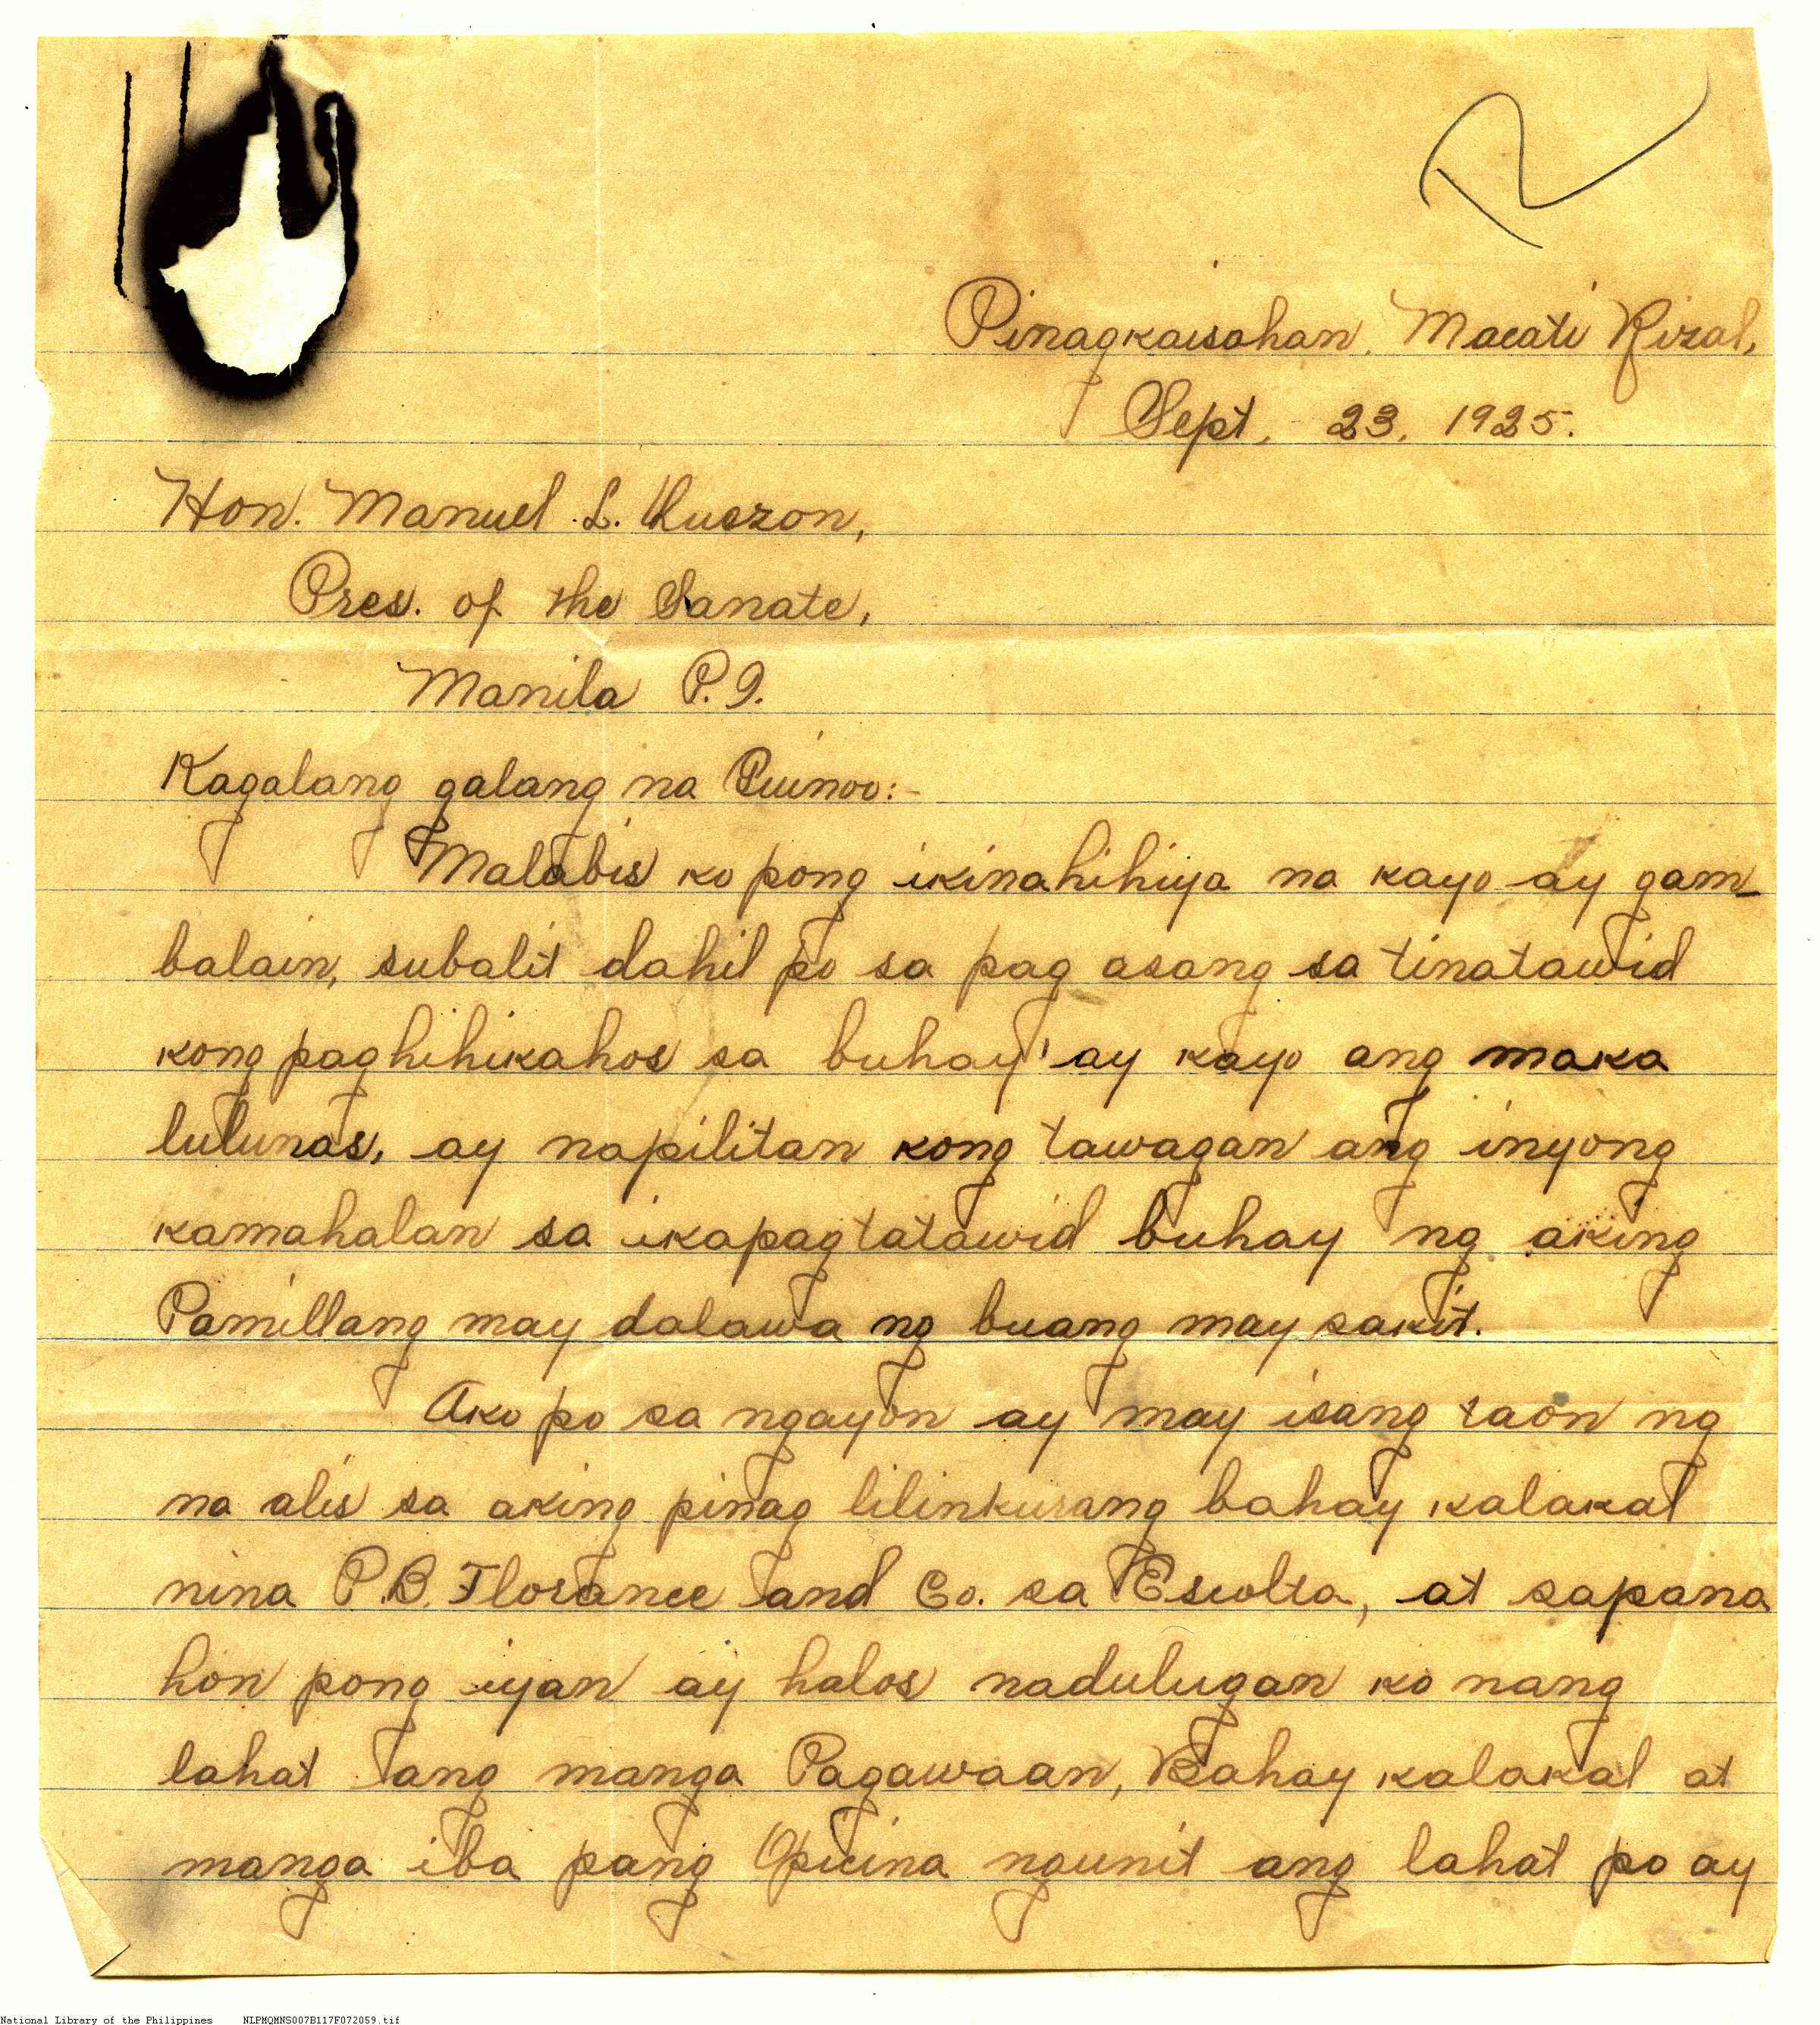 Pinagkaisahan, Macati Rizal,
Sept. 23, 1925.
Hon. Manuel L. Quezon,
Pres. of the Sanate,
Manila P.I.
Kagalang galang na Puinoo:-
Malabis ko pong ikinahihiya na kayo ay gam-
balain, subalit dahil po sa pag asang sa tinatawid
kong paghihikahos sa buhay' ay kayo ang maka
lulunas, ay napilitan kong tawagan ang inyong
kamahalan sa ikapagtatawid buhay ng aking
Pamillang may dalawa ng buang may sakit.
Ako po sa ngayon ay may isang taon ng
na alis sa aking pinag lilinkurang bahay kalakal
nina P.B. Florance and Co. sa Escolta, at sapana
hon pong iyan ay halos nadulugan ko nang
lahat ang manga Pagawaan, Bahay kalakal at
manga iba pang Opicina ngunit ang lahat po ay
National Library of the Philippines NLPMQMNS007B117F072059.tif